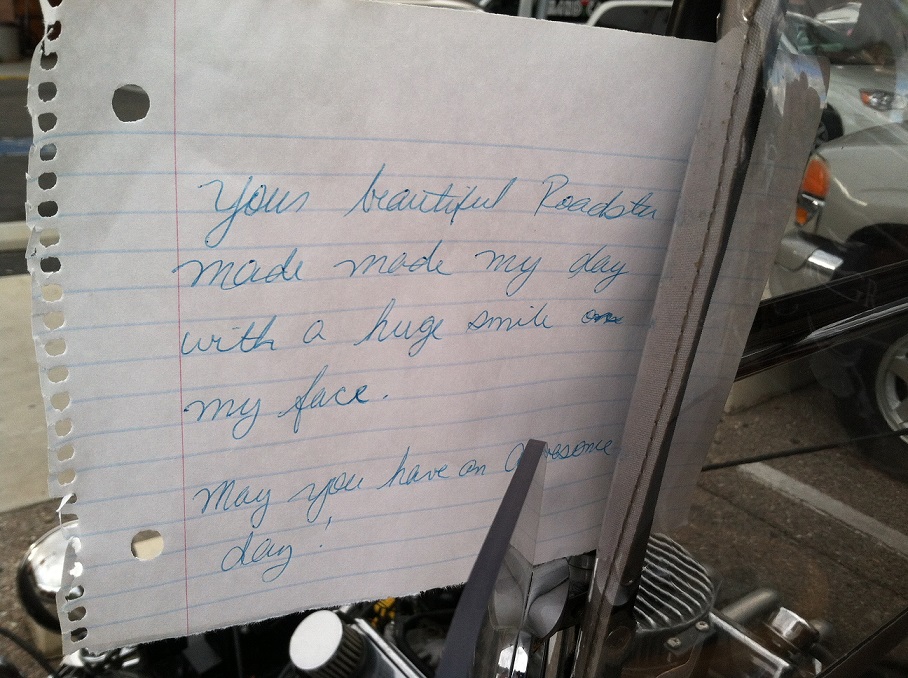 Your beautiful Roadster
made made my day
with a huge smile on
my face.
May you have an awesome
day!